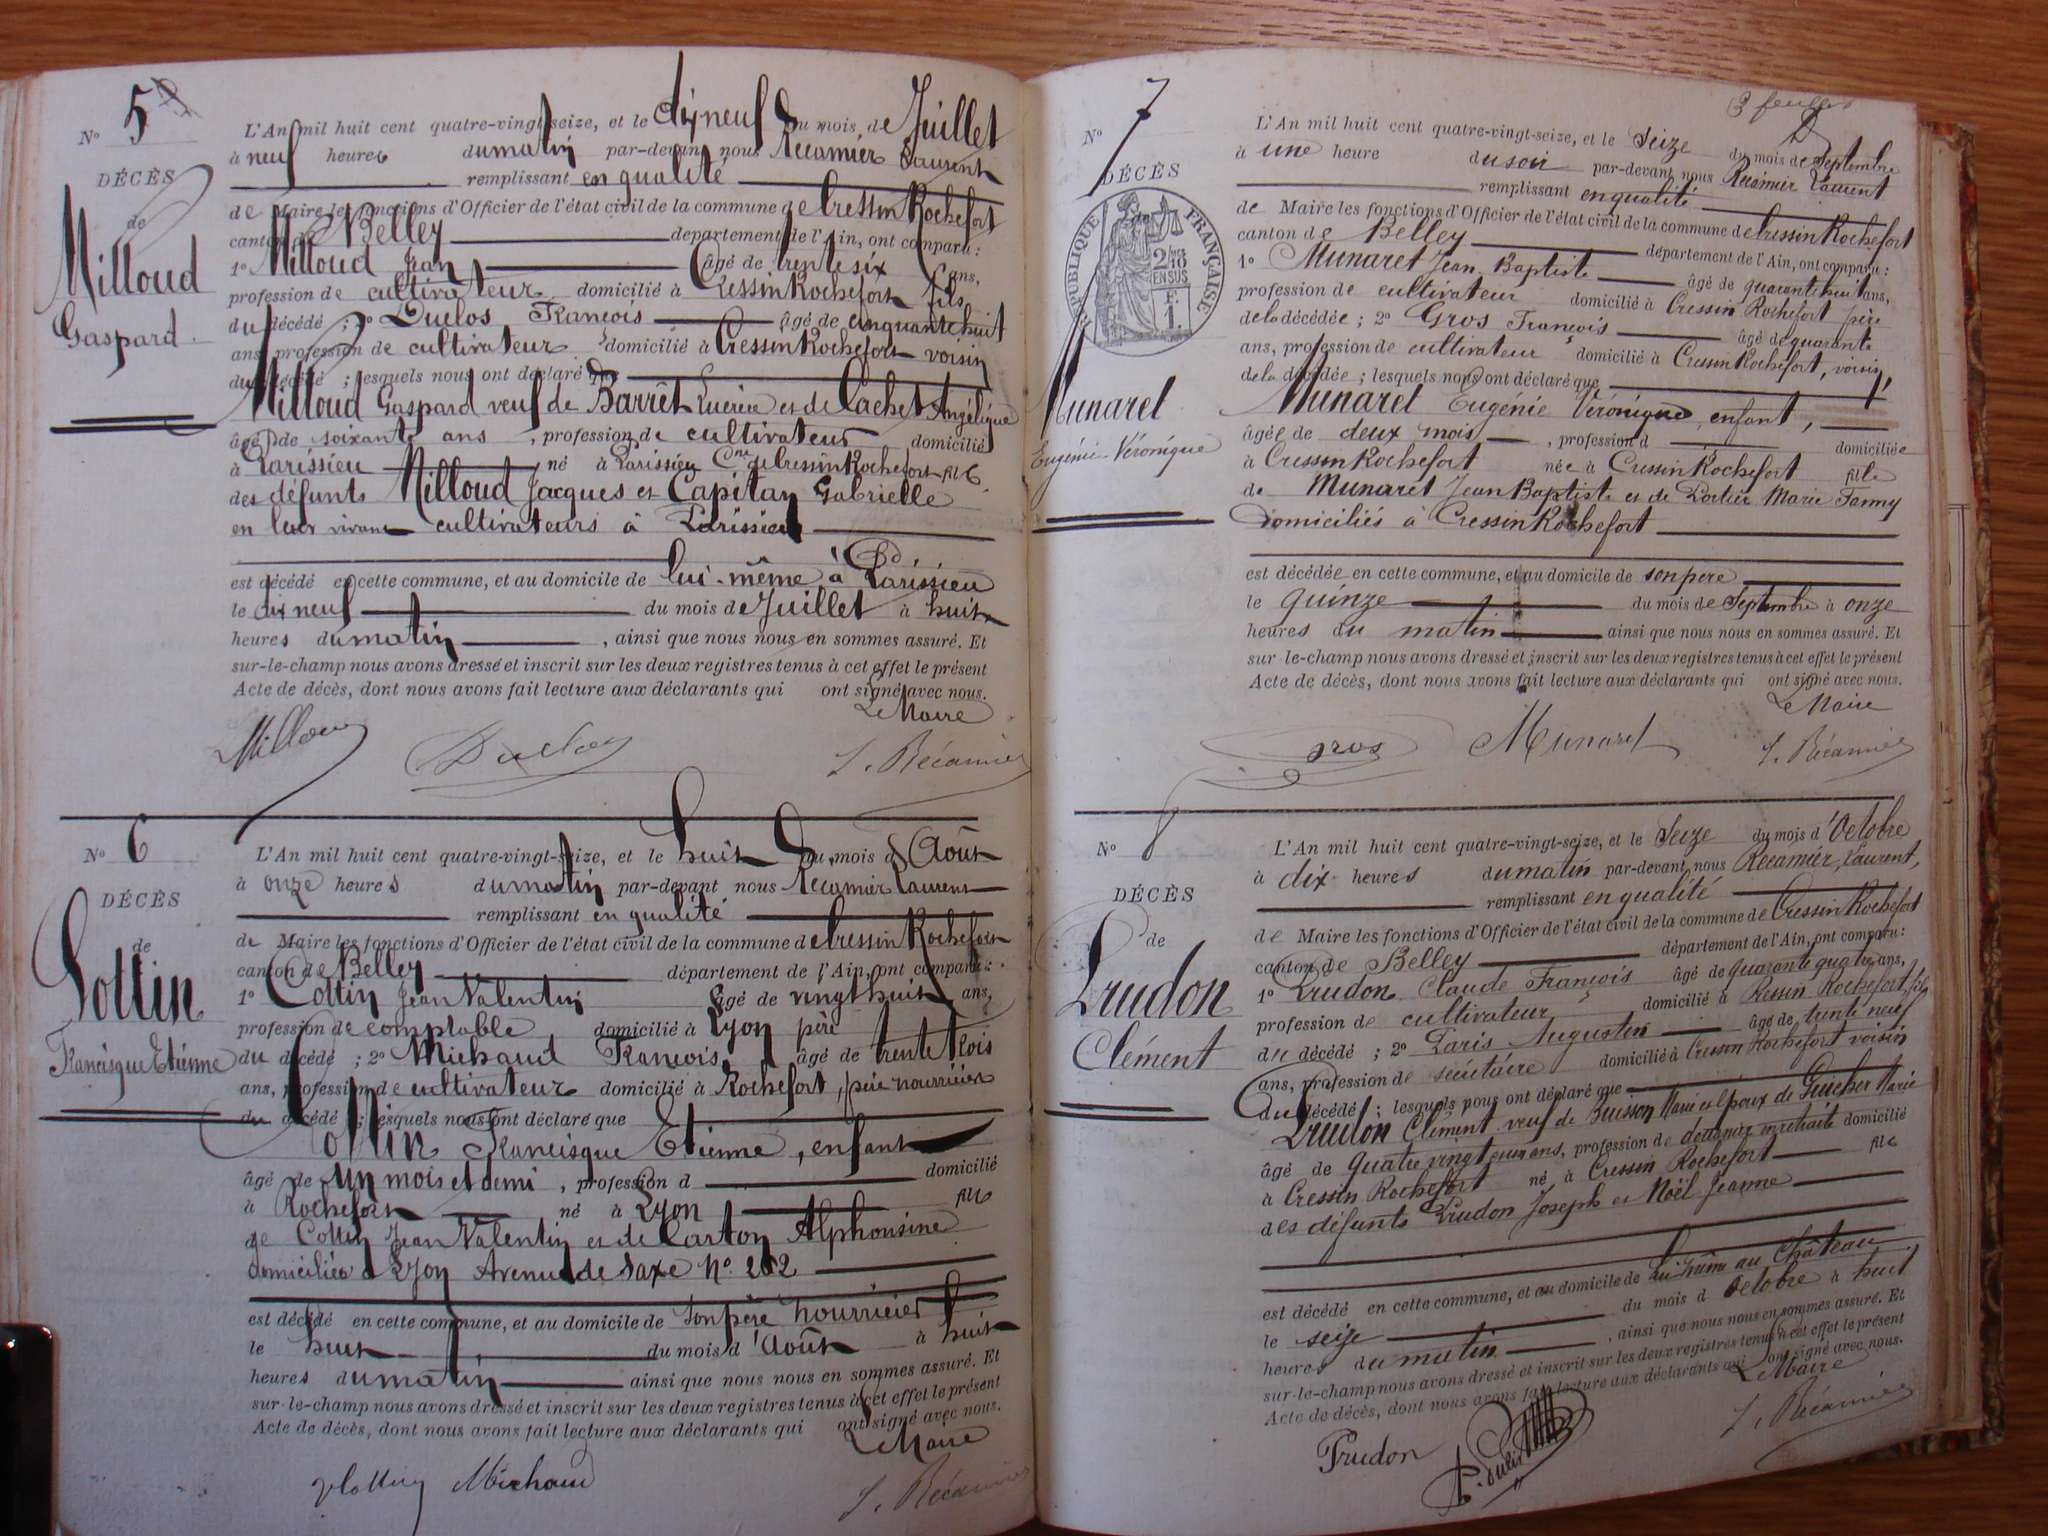 Nº 5
DÉCÈS
de
Milloud
Gaspard
L'An mil huit cent quatre-vingt-seize, et le dix neuf du mois de Juillet
à neuf heures du matin par-devant nous Récamier Laurent
remplissant en qualité
de Maire les fonctions d'Officier de l'état civil de la commune de Cressin Rochefort
canton de Belley département de l'Ain, ont comparu :
1º Milloud Jean âgé de trente six ans,
profession de cultivateur domicilié à Cressin Rochefort fils
du décédé ; 2º Duclos François âgé de cinquante huit
ans, profession de cultivateur domicilié à Cressin Rochefort voisin
du décédé ; lesquels nous ont déclaré que
Milloud Gaspard veuf de Barrêt Lucrèce et de Cachet Angélique
âgé de soixante ans, profession de cultivateur domicilié
à Parissieu né à Parissieu Cne de Cressin Rochefort fils
des défunts Milloud Jacques et Capitan Gabrielle
en leur vivant cultivateurs à Parissieu
est décédé en cette commune, et au domicile de lui-même à Parissieu
le dix neuf du mois de Juillet à huit
heures du matin, ainsi que nous nous en sommes assuré. Et
sur-le-champ nous avons dressé et inscrit sur les deux registres tenus à cet effet le présent
Acte de décès, dont nous avons fait lecture aux déclarants qui ont signé avec nous.
Le Maire
Milloud Duclos L. Récamier
Nº 6
DÉCÈS
de
Cottin
Francisque Etienne
L'An mil huit cent quatre-vingt-seize, et le huit du mois d'Août
à onze heures du matin par-devant nous Récamier Laurent
remplissant en qualité
de Maire les fonctions d'Officier de l'état civil de la commune de Cressin Rochefort
canton de Belley département de l'Ain, ont comparu :
1º Cottin Jean Valentin âgé de vingt huit ans,
profession de comptable domicilié à Lyon père
du décédé ; 2º Michaud François âgé de trente trois
ans, profession de cultivateur domicilié à Rochefort, père nourricier
du décédé ; lesquels nous ont déclaré que
Cottin Francisque Etienne, enfant
âgé de un mois et demi, profession d domicilié
à Rochefort né à Lyon fils
de Cottin Jean Valentin et de Carton Alphonsine
domiciliés à Lyon Avenue de Saxe Nº 262
est décédé en cette commune, et au domicile de son père nourricier
le huit du mois d'Août à huit
heures du matin ainsi que nous nous en sommes assuré. Et
sur-le-champ nous avons dressé et inscrit sur les deux registres tenus à cet effet le présent
Acte de décès, dont nous avons fait lecture aux déclarants qui ont signé avec nous.
Le Maire
Cottin Michaud L. Récamier
3 feuillet
Nº 7
DÉCÈS
RÉPUBLIQUE FRANÇAISE
2/10
EN SUS
Munaret
Eugénie-Véronique
L'An mil huit cent quatre-vingt-seize, et le Seize du mois de Septembre
à une heure du soir par-devant nous Récamier Laurent
remplissant en qualité
de Maire les fonctions d'Officier de l'état civil de la commune de Cressin Rochefort
canton de Belley département de l'Ain, ont comparu :
1º Munaret Jean Baptiste âgé de quarante huit ans,
profession de cultivateur domicilié à Cressin Rochefort père
de la décédée ; 2º Gros François âgé de quarante
ans, profession de cultivateur domicilié à Cressin Rochefort, voisin
de la décédée ; lesquels nous ont déclaré que
Munaret Eugénie Véronique, enfant,
âgée de deux mois, profession d domiciliée
à Cressin Rochefort née à Cressin Rochefort fille
de Munaret Jean Baptiste et de Portier Marie Fanny
domiciliés à Cressin Rochefort
est décédée en cette commune, et au domicile de son père
le quinze du mois de Septembre à onze
heures du matin ainsi que nous nous en sommes assuré. Et
sur-le-champ nous avons dressé et inscrit sur les deux registres tenus à cet effet le présent
Acte de décès, dont nous avons fait lecture aux déclarants qui ont signé avec nous.
Le Maire
gros Munaret L. Récamier
Nº 8
DÉCÈS
de
Prudon
Clément
L'An mil huit cent quatre-vingt-seize, et le Seize du mois d'Octobre
à dix heures du matin par-devant nous Récamier, Laurent,
remplissant en qualité
de Maire les fonctions d'Officier de l'état civil de la commune de Cressin Rochefort
canton de Belley département de l'Ain, ont comparu :
1º Prudon Claude François âgé de quarante quatre ans,
profession de cultivateur domicilié à Cressin Rochefort, fils
du décédé ; 2º Paris Augustin âgé de trente neuf
ans, profession de secrétaire domicilié à Cressin Rochefort voisin
du décédé ; lesquels nous ont déclaré que
Prudon Clément veuf de Buisson Marie et époux de Guicher Marie
âgé de quatre vingt un ans, profession de douanier en retraite domicilié
à Cressin Rochefort né à Cressin Rochefort fils
des défunts Prudon Joseph et Noël Jeanne
est décédé en cette commune, et au domicile de lui-même au Château
le seize du mois d Octobre à huit
heures du matin, ainsi que nous nous en sommes assuré. Et
sur-le-champ nous avons dressé et inscrit sur les deux registres tenus à cet effet le présent
Acte de décès, dont nous avons fait lecture aux déclarants qui ont signé avec nous.
Le Maire
Prudon L. Récamier